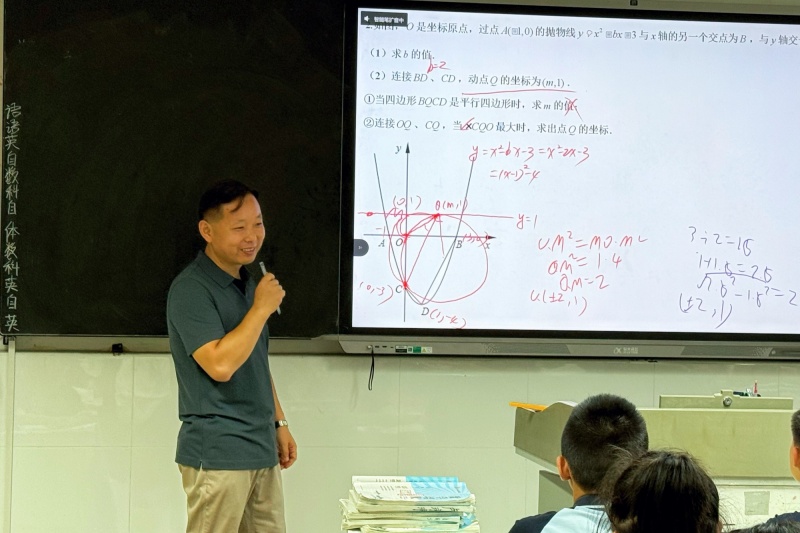 智能笔扩音中
2.如图，O 是坐标原点，过点 A(−1,0) 的抛物线 y=x²−bx−3 与 x 轴的另一个交点为 B，与 y 轴交
（1）求 b 的值.
b=2
（2）连接 BD、CD，动点 Q 的坐标为 (m,1).
①当四边形 BQCD 是平行四边形时，求 m 的值.
②连接 OQ、CQ，当∠CQO 最大时，求出点 Q 的坐标.
y=x²-bx-3=x²-2x-3
=(x-1)²-4
y
(0,1)
Q(m,1)
y=1
-1
A
O
B
x
C
(0,-3)
D(1,-4)
QM²=1·4
QM=2
(±2,1)
3÷2=1.5
1+1.5=2.5
(±2,1)
语
英
自
数
科
目
体
数
科
英
自
英